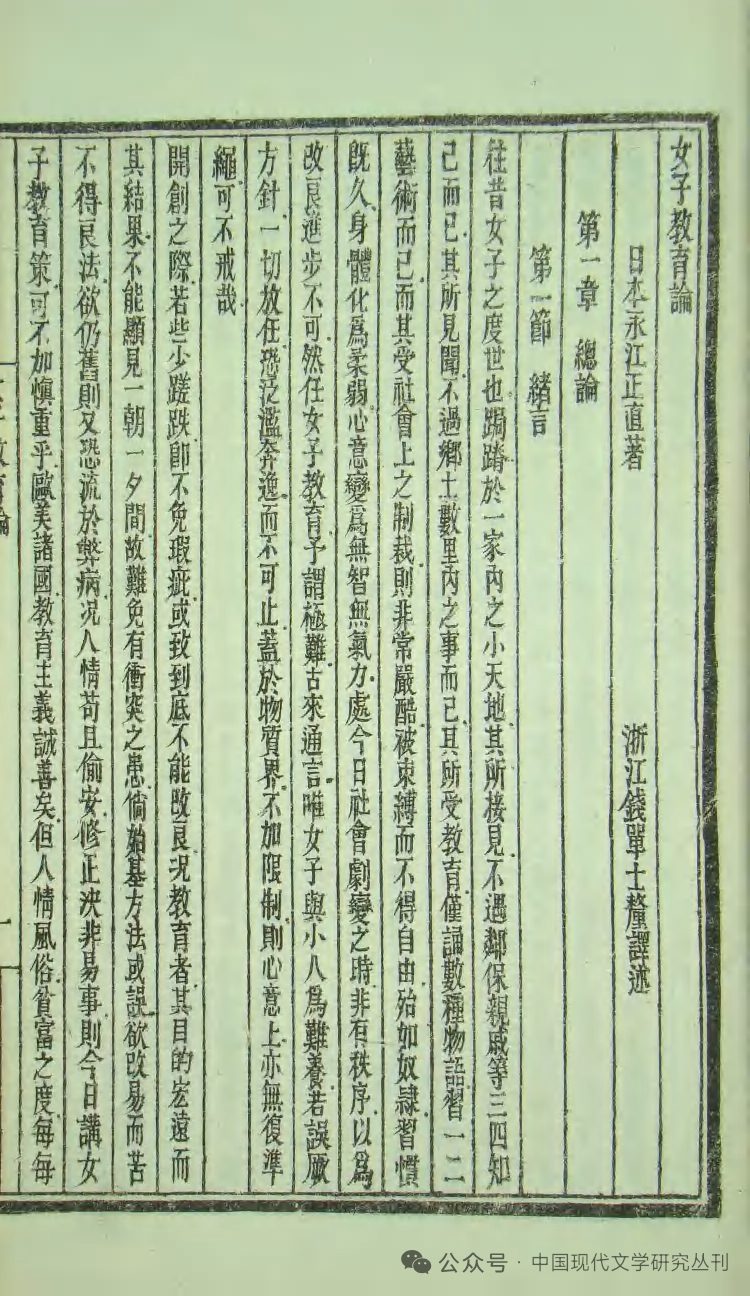 女子教育論
日本永江正直著　浙江錢單士釐譯述
第一章　總論
第一節　緒言
往昔女子之度世也跼蹐於一家內之小天地其所接見不過鄰保親戚等三四知
己而已其所見聞不過鄉土數里內之事而已其所受教育僅誦數種物語習一二
藝術而已而其受社會上之制裁則非常嚴酷被束縛而不得自由殆如奴隷習慣
旣久身體化爲柔弱心意變爲無智無氣力處今日社會劇變之時非有秩序以爲
改良進步不可然任女子教育予謂極難古來通言唯女子與小人爲難養若誤厥
方針一切放任恐泛濫奔逸而不可止蓋於物質界不加限制則心意上亦無復準
繩可不戒哉
開創之際若些少蹉跌卽不免瑕疵或致到底不能改良況教育者其目的宏遠而
其結果不能顯見一朝一夕間故難免有衝突之患倘始基方法或誤欲改易而苦
不得良法欲仍舊則又恐流於弊病况人情苟且偷安修正決非易事則今日講女
子教育策可不加愼重乎歐美諸國教育主義誠善矣但人情風俗貧富之度每每
公众号 · 中国现代文学研究丛刊